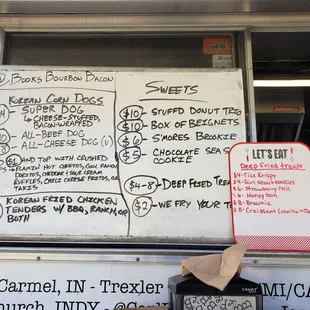 yelp
Books Bourbon Bacon
Korean Corn Dogs
Super Dog
4 Cheese-Stuffed,
Bacon-Wrapped
All-Beef Dog
All-Cheese Dog
$1 and top with crushed
Flamin' Hot Cheetos, Cool Ranch
Doritos, Cheddar & Sour Cream
Ruffles, Chili Cheese Fritos, or
Takis
Korean Fried Chicken
Tenders w/ BBQ, Ranch, or
Both
Sweets
$10 - Stuffd Donut Trio
$10 - Box of Beignets
$6 - S'mores Brookie
$5 - Chocolate Seas
Cookie
$4-8 - Deep Fried Trea
$2 - We Fry You
LET'S EAT
Deep fried treats
$4 - Rice Krispy
$4 - Girl Scout cookies
$ - Strawberry roll
$ - Honey bun
$ - Brownie
$8 - Croissant
Carmel, IN - Trexler
MI/CA
Church, INDY -